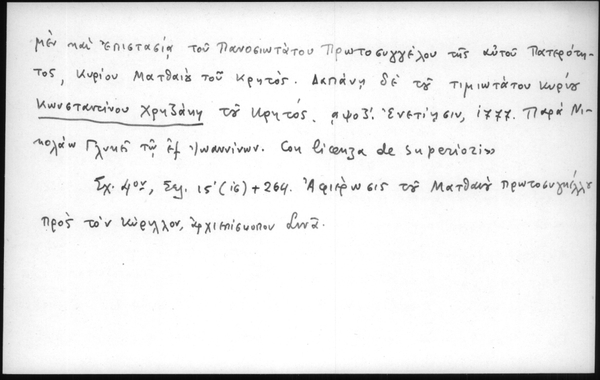 μὲν καὶ Ἐπιστασίᾳ τοῦ Πανοσιωτάτου Πρωτοσυγγέλου τῆς αὐτοῦ Πατερότη-
τος, Κυρίου Ματθαίου τοῦ Κρητός. Δαπάνῃ δὲ τοῦ τιμιωτάτου Κυρίου
Κωνσταντίνου Χρηβάκη τοῦ Κρητός. Ἐνετίησιν, 1777. Παρὰ Νι-
κολάῳ Γλυκεῖ τῷ ἐξ Ἰωαννίνων. Con licenza de superiori»
Σχ. 4ον, Σελ. ις΄ (16) + 264. Ἀφιέρωσις τοῦ Ματθαίου Πρωτοσυγκέλλου
πρὸς τὸν Κύριλλον, ἀρχιεπίσκοπον Σινᾶ.